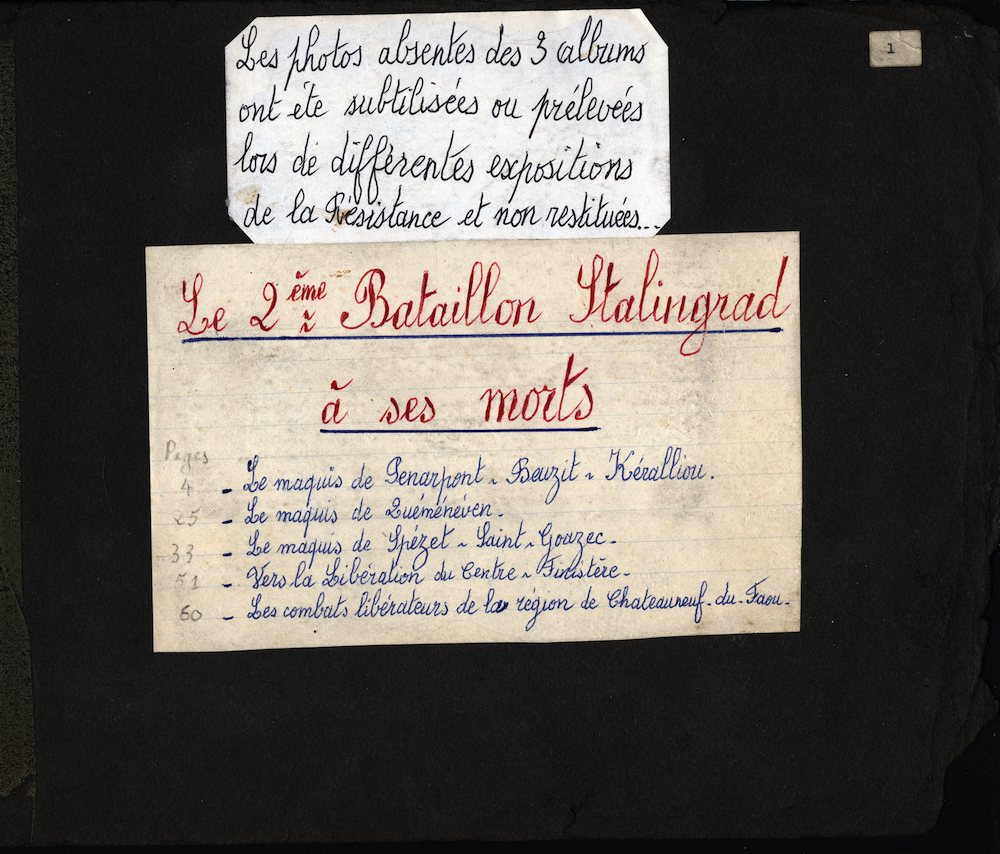 1
Les photos absentes des 3 albums
ont été subtilisées ou prélevées
lors de différentes expositions
de la Résistance et non restituées...
Le 2ème Bataillon Stalingrad
à ses morts
Pages
4 - Le maquis de Penarpont - Beuzit - Kéralliou.
25 - Le maquis de Quéménéven.
33 - Le maquis de Spézet - Saint-Goazec.
51 - Vers la Libération du Centre-Finistère.
60 - Les combats libérateurs de la région de Chateauneuf-du-Faou.